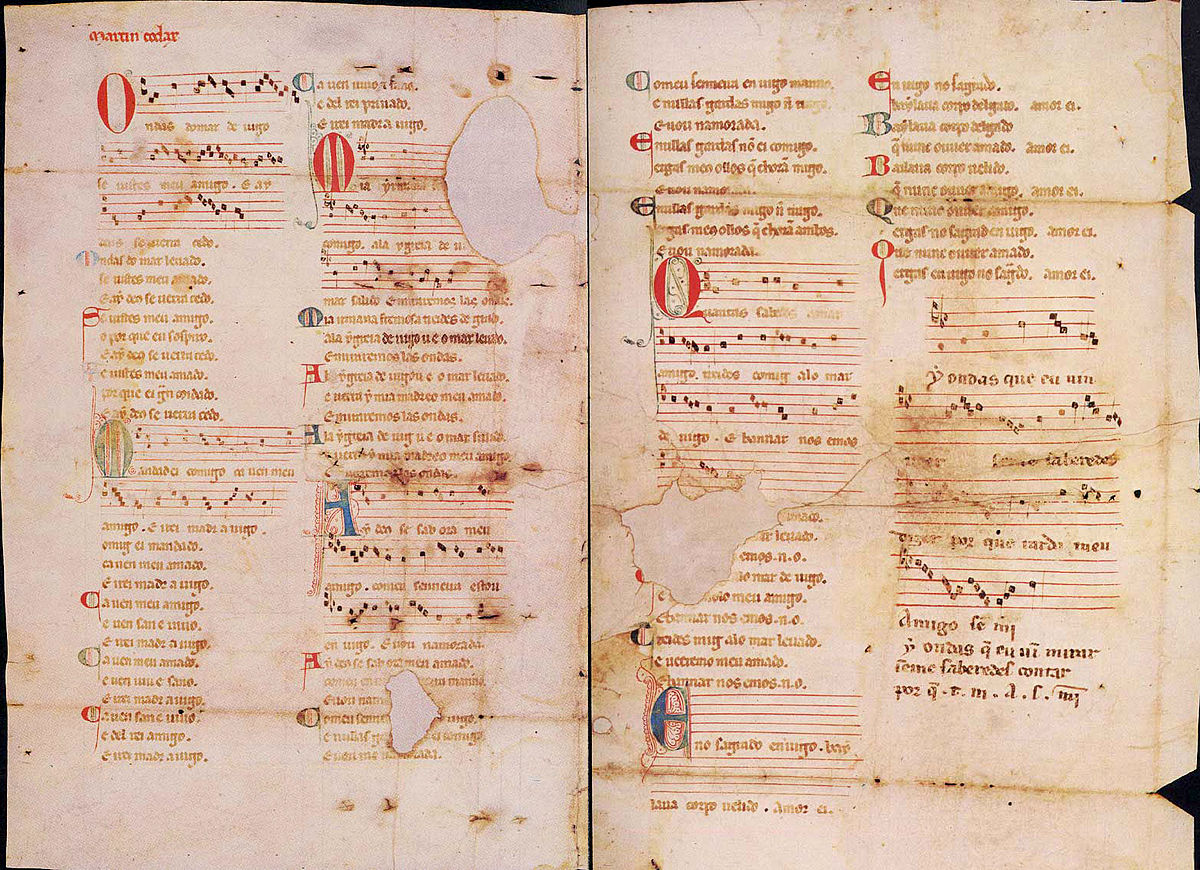 Martin codax
Ondas do mar de uigo
se uistes meu amigo. E ay
deus se uerra cedo.
Ondas do mar leuado.
se uistes meu amado.
E ay deo se uerra cedo.
Se uistes meu amigo.
o por que eu sospiro.
E ay deo se uerra cedo.
Se uistes meu amado.
por que ei gñ coidado.
E ay deo se uerra cedo.
Mandad ei comigo ca uen meu
amigo. E irei madr a uigo.
Comig ei mandado.
ca uen meu amado.
E irei madr a uigo.
Ca uen meu amigo.
e uen san e uiuo.
E irei madr a uigo.
Ca uen meu amado.
e uen uiu e sano.
E irei madr a uigo.
Ca uen san e uiuo.
e del rei amigo.
E irei madr a uigo.
Ca uen uiuo e sano.
e del rei priuado.
E irei madr a uigo.
Mia yrmana
comigo. ala ygreia de u
mar salido E miraremos las ondas.
Mia irmana fremosa treides de grado.
ala ygreia de uigo u e o mar leuado.
E miraremos las ondas.
Ala ygreia de uigo u e o mar leuado.
e uerra y mia madre o meu amado.
E miraremos las ondas.
Ala ygreia de uig u e o mar salido.
e uerra y mia madre o meu amigo
E miraremos las ondas.
Ay deo se sab ora meu
amigo. comeu senneira estou
en uigo. E uou namorada.
Ay deo se sab ora meu amado.
comeu en uigo senneira manno.
E uou nam
Comeu senne uigo.
e nullas g comigo.
E uou namorada.
Comeu senneira en uigo manno.
e nullas gardas migo ñ trago.
E uou namorada.
E nullas gardas nõ ei comigo.
ergas meo ollos q̃ chorã migo.
E uou namorada.
E nullas gardas migo ñ trago.
ergas meo ollos q̃ chorã ambos.
E uou namorada.
Quantas sabedes amar
amigo. treides comig alo mar
de uigo. E bannar nos emos
amado.
mar leuado.
emos. n. o.
alo mar de uigo.
e ueremolo meu amigo.
E bannar nos emos. n. o.
Treides mig alo mar leuado.
e ueeremo meu amado.
E bannar nos emos. n. o.
Eno sagrado en uigo. bay
laua corpo uelido. Amor ei.
En uigo no sagrado.
baylaua corpo delgado. amor ei.
Baylaua corpo delgado
q̃ nunc ouuer amado. amor ei.
Bailaua corpo uelido.
q̃ nunc ouuer amigo. amor ei.
Que nunc ouuer amigo.
ergas no sagrad en uigo. amor ei.
Que nunc ouuer amado.
ergas en uigo no sagrado. amor ei.
Ay ondas que eu uin
ueer se me saberedes
dizer por que tarda meu
Amigo se mi
Ay ondas q̃ eu uĩ mirar
se me saberedes contar
por q̃. t. m. A. s. mi